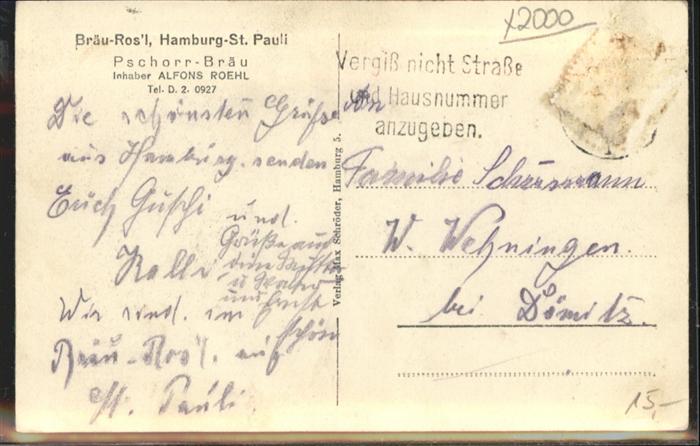 x2000
Bräu-Ros'l, Hamburg-St. Pauli
Pschorr-Bräu
Inhaber ALFONS ROEHL
Tel. D. 2. 0927
Vergiß nicht Straße
und Hausnummer
anzugeben.
Die schönsten Grüße
aus Hamburg senden
Erich
und.
Grüße
u
und
Wir sind. im
schön
Bräu-Ros'l. auf
St. Pauli.
Verlag Max Schröder, Hamburg 5.
Familie
W. Wehningen.
bei Dömitz.
15,-